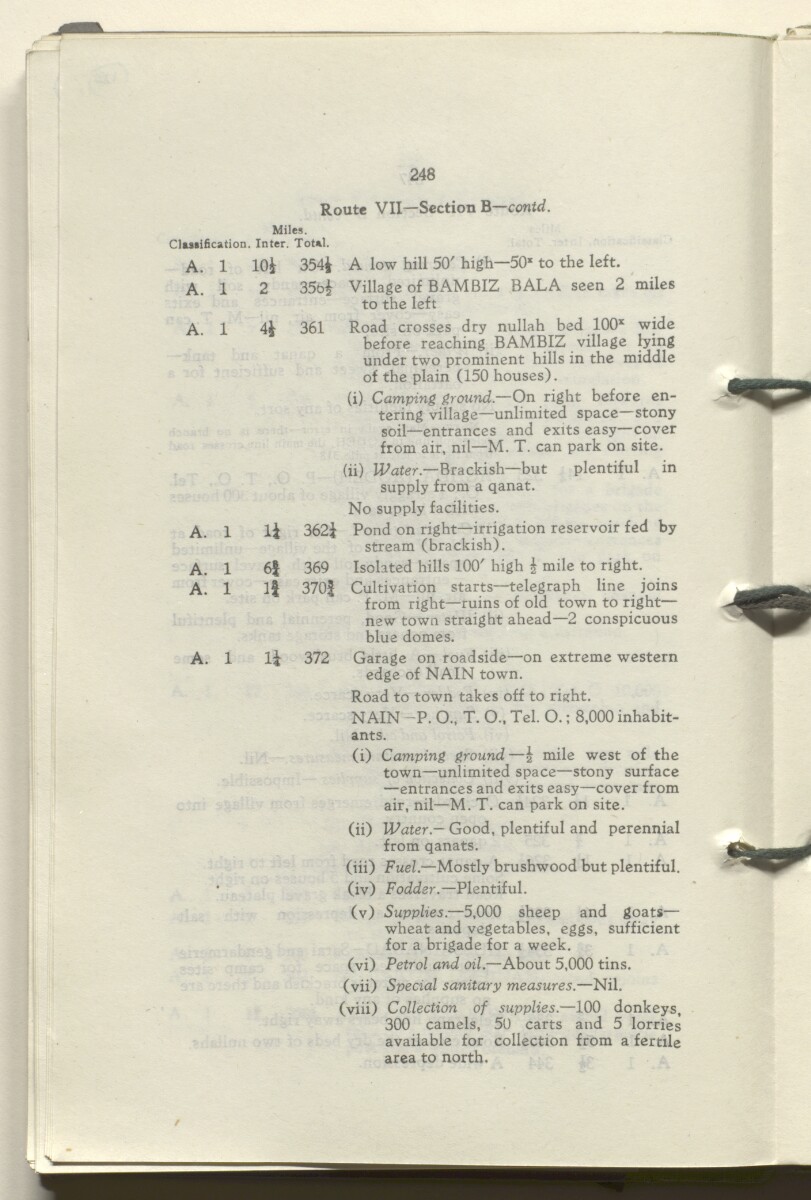 248
Route VII—Section B—contd.
Miles.
Classification. Inter. Total.
A. 1 10½ 354½ A low hill 50′ high—50ˣ to the left.
A. 1 2 356½ Village of BAMBIZ BALA seen 2 miles
to the left
A. 1 4½ 361 Road crosses dry nullah bed 100ˣ wide
before reaching BAMBIZ village lying
under two prominent hills in the middle
of the plain (150 houses).
(i) Camping ground.—On right before en-
tering village—unlimited space—stony
soil—entrances and exits easy—cover
from air, nil—M. T. can park on site.
(ii) Water.—Brackish—but plentiful in
supply from a qanat.
No supply facilities.
A. 1 1¼ 362¼ Pond on right—irrigation reservoir fed by
stream (brackish).
A. 1 6¾ 369 Isolated hills 100′ high ½ mile to right.
A. 1 1¾ 370¾ Cultivation starts—telegraph line joins
from right—ruins of old town to right—
new town straight ahead—2 conspicuous
blue domes.
A. 1 1¼ 372 Garage on roadside—on extreme western
edge of NAIN town.
Road to town takes off to right.
NAIN—P. O., T. O., Tel. O.; 8,000 inhabit-
ants.
(i) Camping ground—½ mile west of the
town—unlimited space—stony surface
—entrances and exits easy—cover from
air, nil—M. T. can park on site.
(ii) Water.—Good, plentiful and perennial
from qanats.
(iii) Fuel.—Mostly brushwood but plentiful.
(iv) Fodder.—Plentiful.
(v) Supplies.—5,000 sheep and goats—
wheat and vegetables, eggs, sufficient
for a brigade for a week.
(vi) Petrol and oil.—About 5,000 tins.
(vii) Special sanitary measures.—Nil.
(viii) Collection of supplies.—100 donkeys,
300 camels, 50 carts and 5 lorries
available for collection from a fertile
area to north.